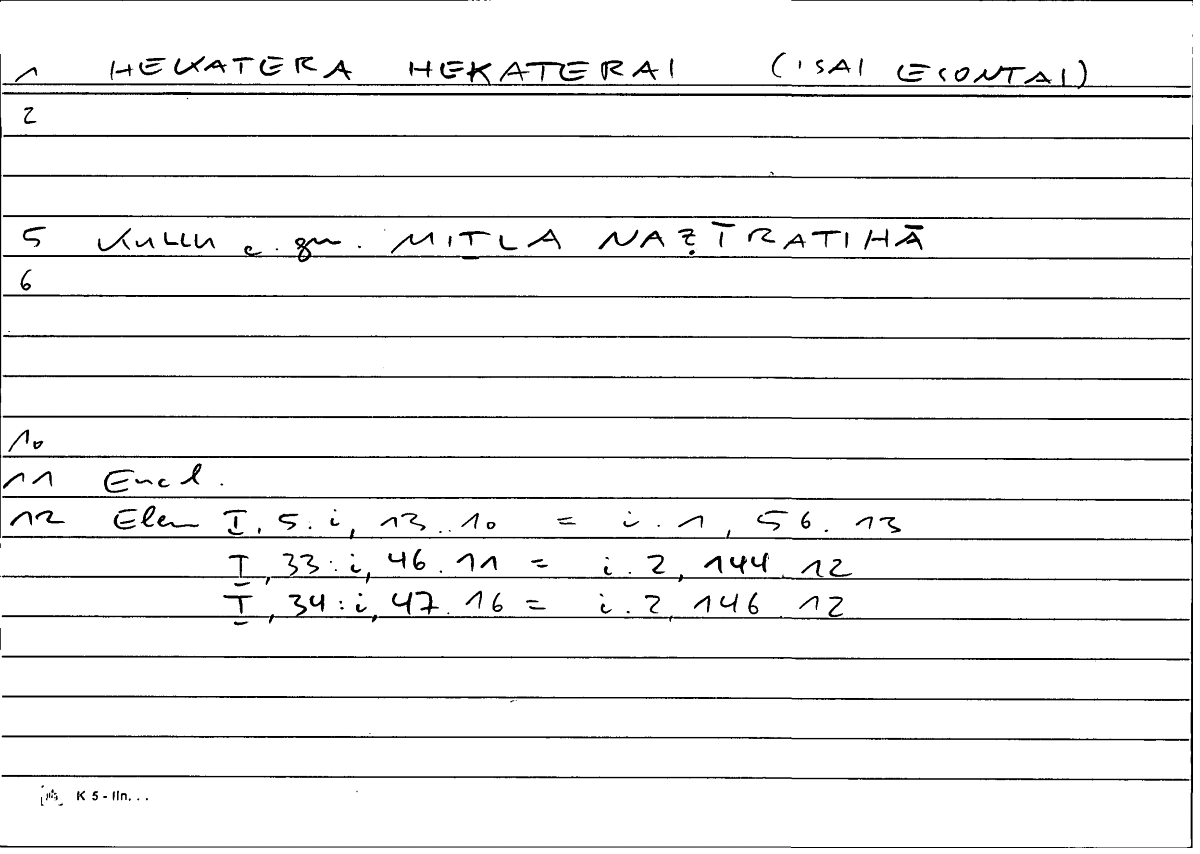 1 HEKATERA HEKATERAI (ISAI ESONTAI)
2
5 Kullu c. gen. MIṮLA NAẒĪRATIHĀ
6
10
11 Eucl.
12 Elem I, 5: i, 13. 10 = i. 1, 56. 13
I, 33: i, 46. 11 = i. 2, 144. 12
I, 34: i, 47. 16 = i. 2, 146. 12
K 5 - lin. . .